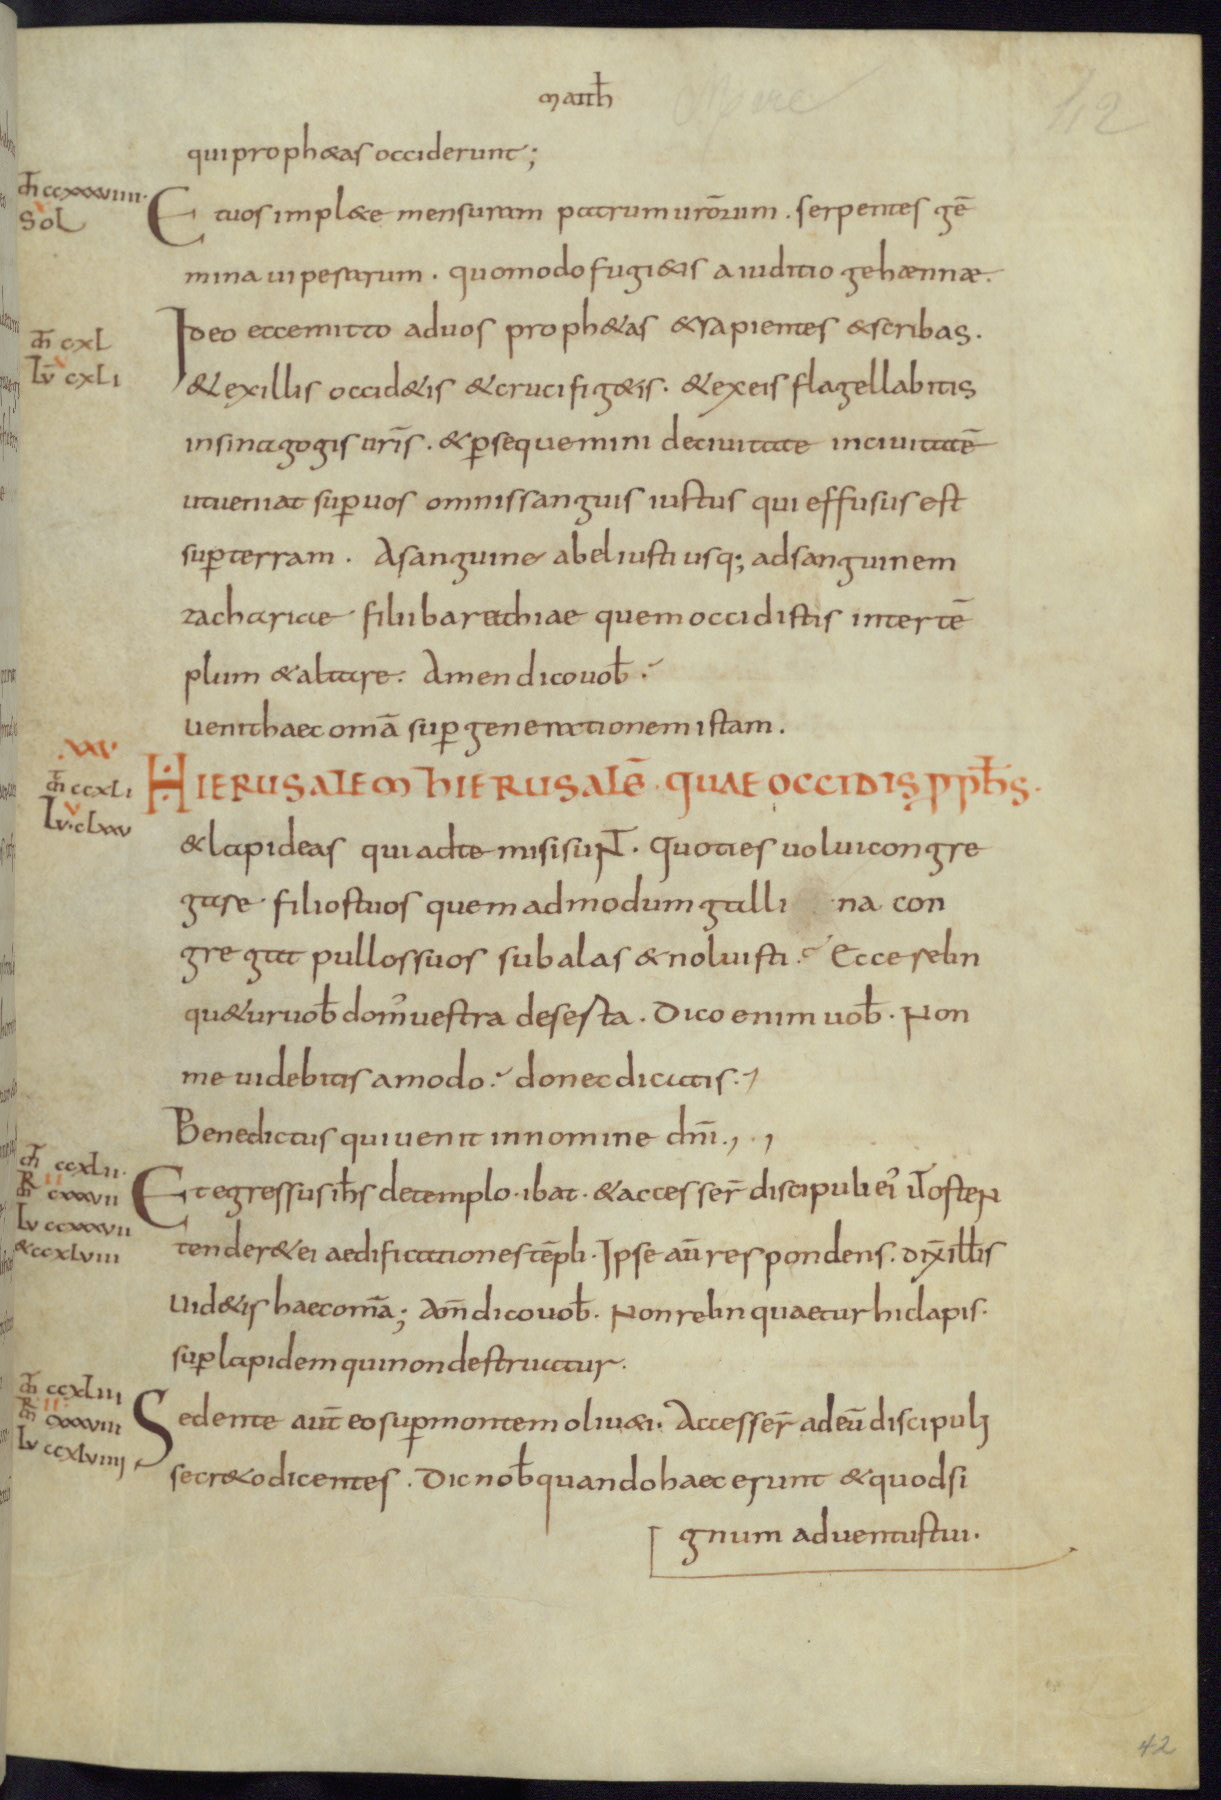 matth
42
qui proph&as occiderunt;
m ccxxxviiii.
Sol
Et uos impl&e mensuram patrum urōrum . serpentes gē
mina uiperarum . quomodo fugi&is a iuditio gehænnæ.
m cxl
Lv cxli
Ideo ecce mitto ad uos proph&as & sapientes & scribas.
& ex illis occid&is & crucifig&is. & ex eis flagellabitis
in sinagogis urīs . & ꝑsequemini de ciuitate in ciuitatē
ut ueniat suꝑ uos omnis sanguis iustus qui effusus est
suꝑ terram . A sanguine abel iusti usq; ad sanguinem
zachariae filii barachiae quem occidistis inter tē
plum & altare. Amen dico uob̄.
uenit haec omā suꝑ generationem istam .
.xxv
m ccxli
Lv. clxxv
HIERUSALEM HIERUSALĒ . QUAE OCCIDIS PPH̄S.
& lapideas qui ad te misi sunt . Quoties uolui congre
gare filios tuos quem ad modum galli na con
gregat pullos suos sub alas & noluisti . Ecce relin
qu&ur uob̄ dom' uestra deserta . Dico enim uob̄ . Non
me uidebitis amodo. donec dicatis.
Benedictus qui uenit in nomine dnī . , . ,
m ccxlii.
R II
m cxxxvii
Lv ccxxxvii
& ccxlviii
Et egressus ih̄s de templo . ibat . & accesser̄ discipuli ei' ut̄ osten
tender& ei aedificationes tēpli . Ipse aū respondens. dix̄ illis
Uid&is haec omā; Am̄ dico uob̄ . Non relinquaetur hic lapis.
suꝑ lapidem qui non destruatur .
m ccxliii
R II
m cxxxviii
Lv ccxlviiii
Sedente aut̄ eo suꝑ montem oliu&i . Accesser̄ ad eū discipuli
secr&o dicentes . Dic nob̄ quando haec erunt & quod si
gnum aduentus tui .
42